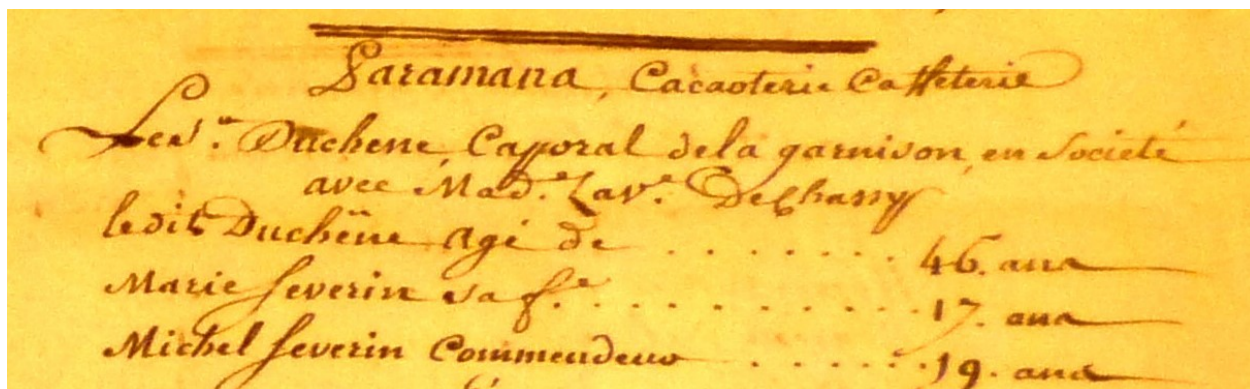 Paramana, Cacaoterie Caffeterie
Le S.r Duchene, Caporal de la garnison, en Societé
avec Mad.e La v.e DeCharry
ledit Duchëne agé de . . . . . . . . 46. ans
Marie Severin sa f.e . . . . . . . . . . . 17. ans
Michel Severin Commendeur . . . . . . 19. ans